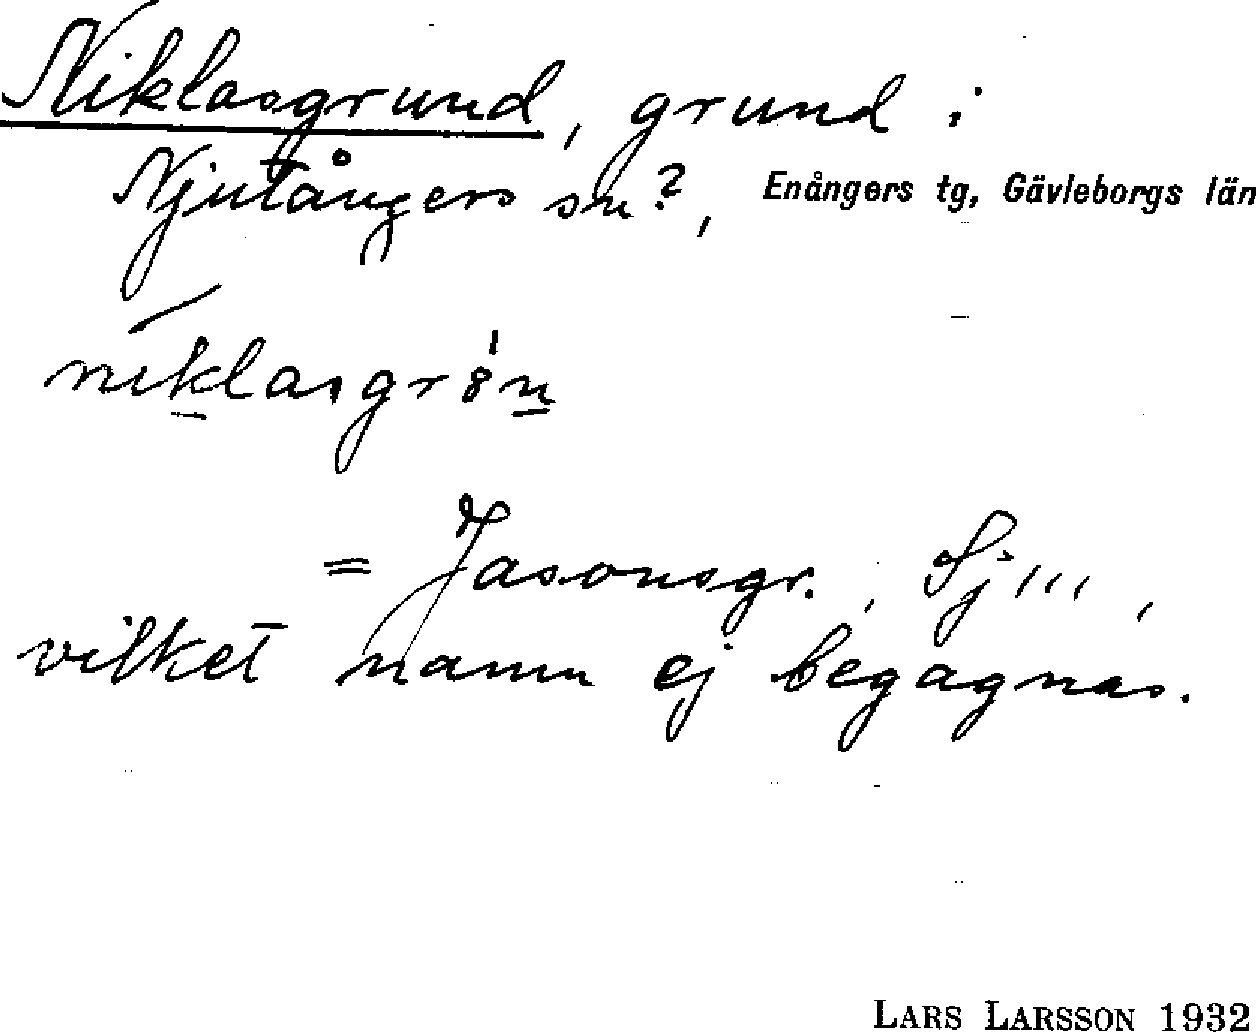 Niklasgrund, grund i
Njutångers sn?, Enångers tg, Gävleborgs län
niklasgrón
= Jasonsgr., Sj 111,
vilket namn ej begagnas.
LARS LARSSON 1932